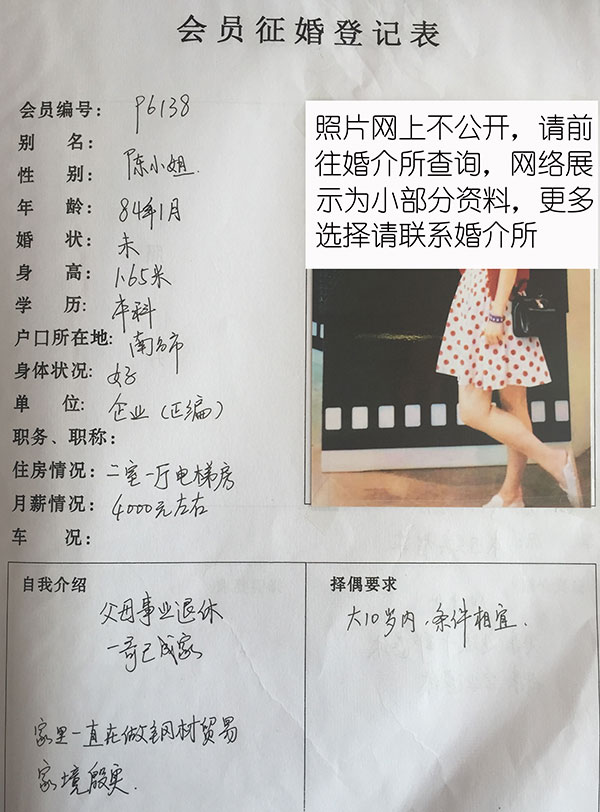 会员征婚登记表
会员编号: P6138
别 名:
性 别: 陈小姐.
年 龄: 84年1月
婚 状: 未
身 高: 1.65米
学 历: 本科
户口所在地: 南宁市
身体状况: 好
单 位: 企业(正编)
职务、职称:
住房情况: 二室一厅电梯房
月薪情况: 4000元左右
车 况:
照片网上不公开,请前
往婚介所查询,网络展
示为小部分资料,更多
选择请联系婚介所
自我介绍
父母事业退休
一哥已成家
家里一直在做钢材贸易
家境殷实.
择偶要求
大10岁内.条件相宜.